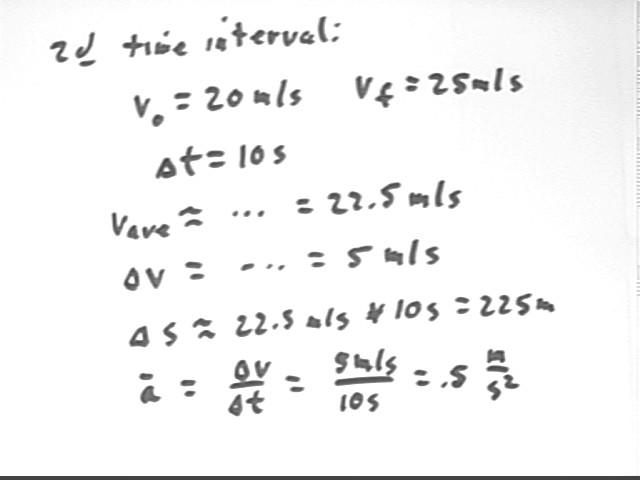 2d time interval:
v₀ = 20 m/s   v_f = 25 m/s
Δt = 10 s
v_ave ≈ ... = 22.5 m/s
Δv = ... = 5 m/s
Δs ≈ 22.5 m/s * 10 s = 225 m
ā = Δv/Δt = 5 m/s / 10 s = .5 m/s²